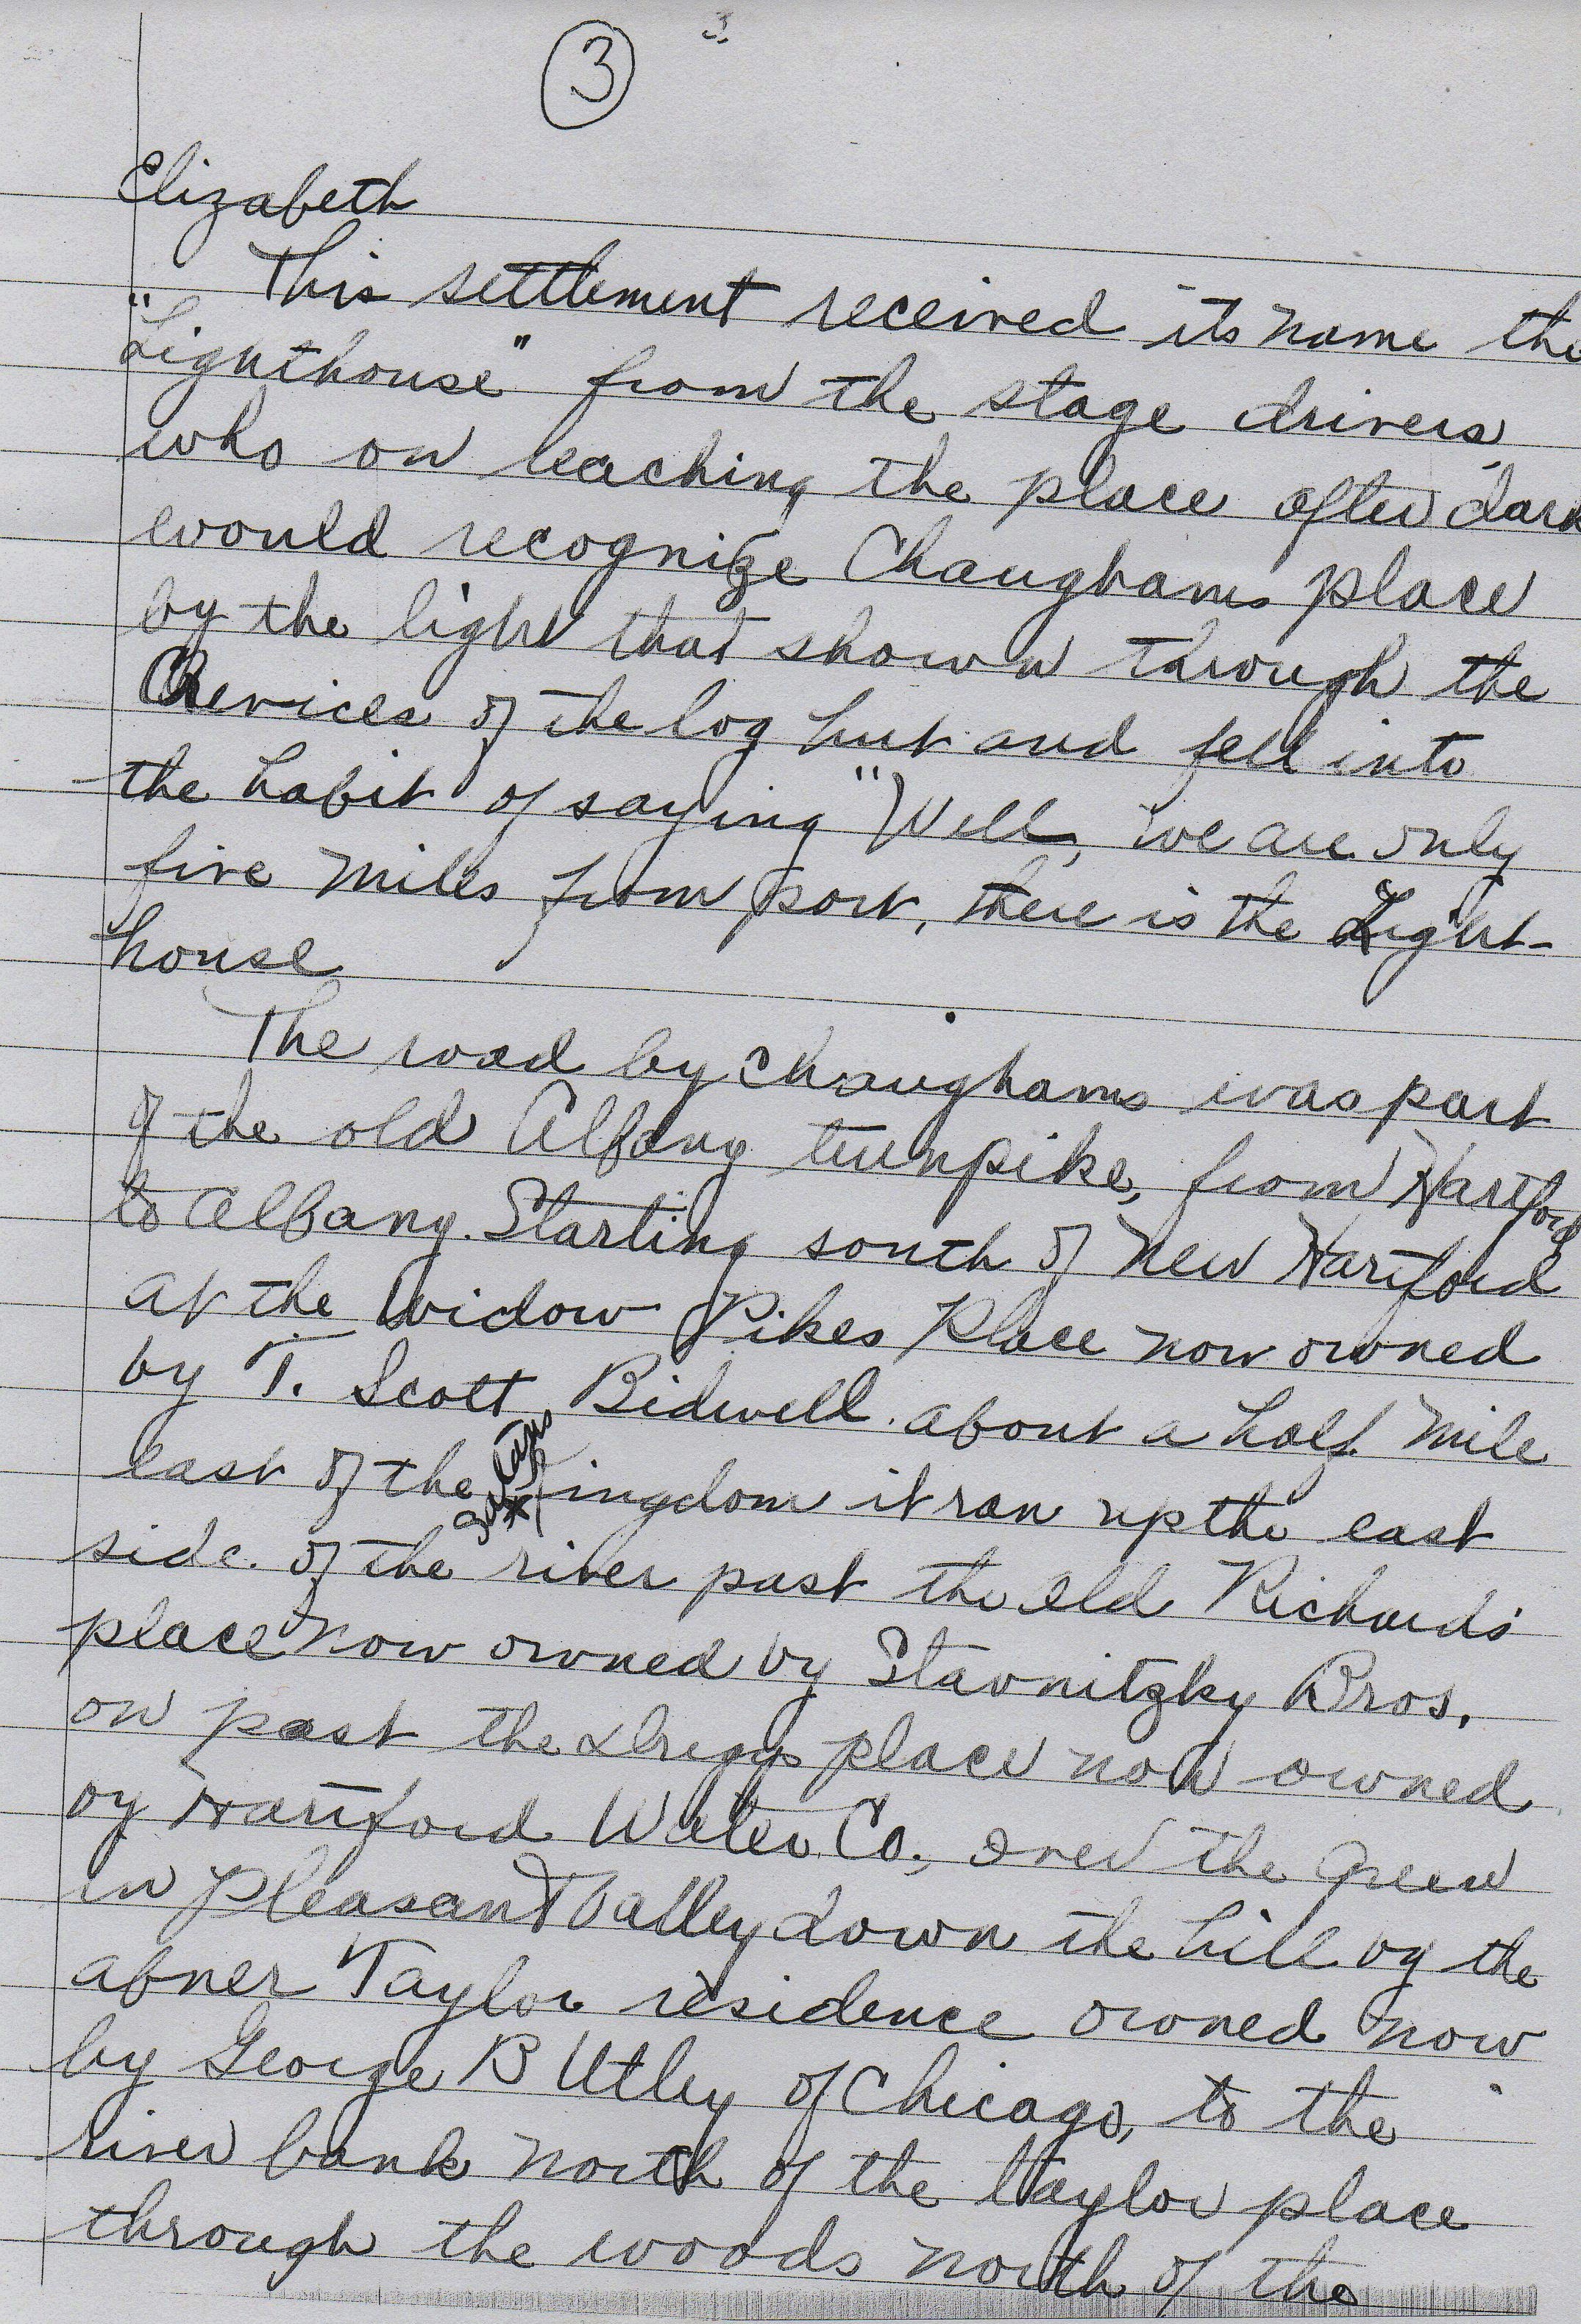 3
3.
Elizabeth
This settlement received its name the
"Lighthouse" from the stage drivers,
who on reaching the place after dark
would recognize Chaughams place
by the light that shown through the
Crevices of the log hut and fell into
the habit of saying "Well, we are only
five miles from port, there is the Light-
house
The road by Chaughams was part
of the old Albany turnpike, from Hartford
to Albany. Starting south of New Hartford
at the Widow Pikes Place now owned
by T. Scott Bidwell. about a half mile
east of the Kingdom it ran up the east
side of the river past the old Richards
place now owned by Stavnitzky Bros.
on past the Driggs place now owned
by Hartford Water Co., over the Green
in Pleasant Valley down the hill by the
abner Taylor residence owned now
by George B Utley of Chicago, to the
river bank north of the Taylor place
through the woods north of the